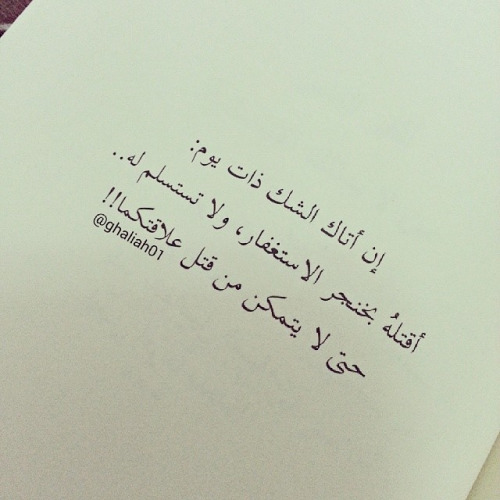 إن أتاك الشك ذات يوم:
أقتلهُ بخنجر الاستغفار، ولا تستسلم له..
حتى لا يتمكن من قتل علاقتكما!!
@ghaliah01